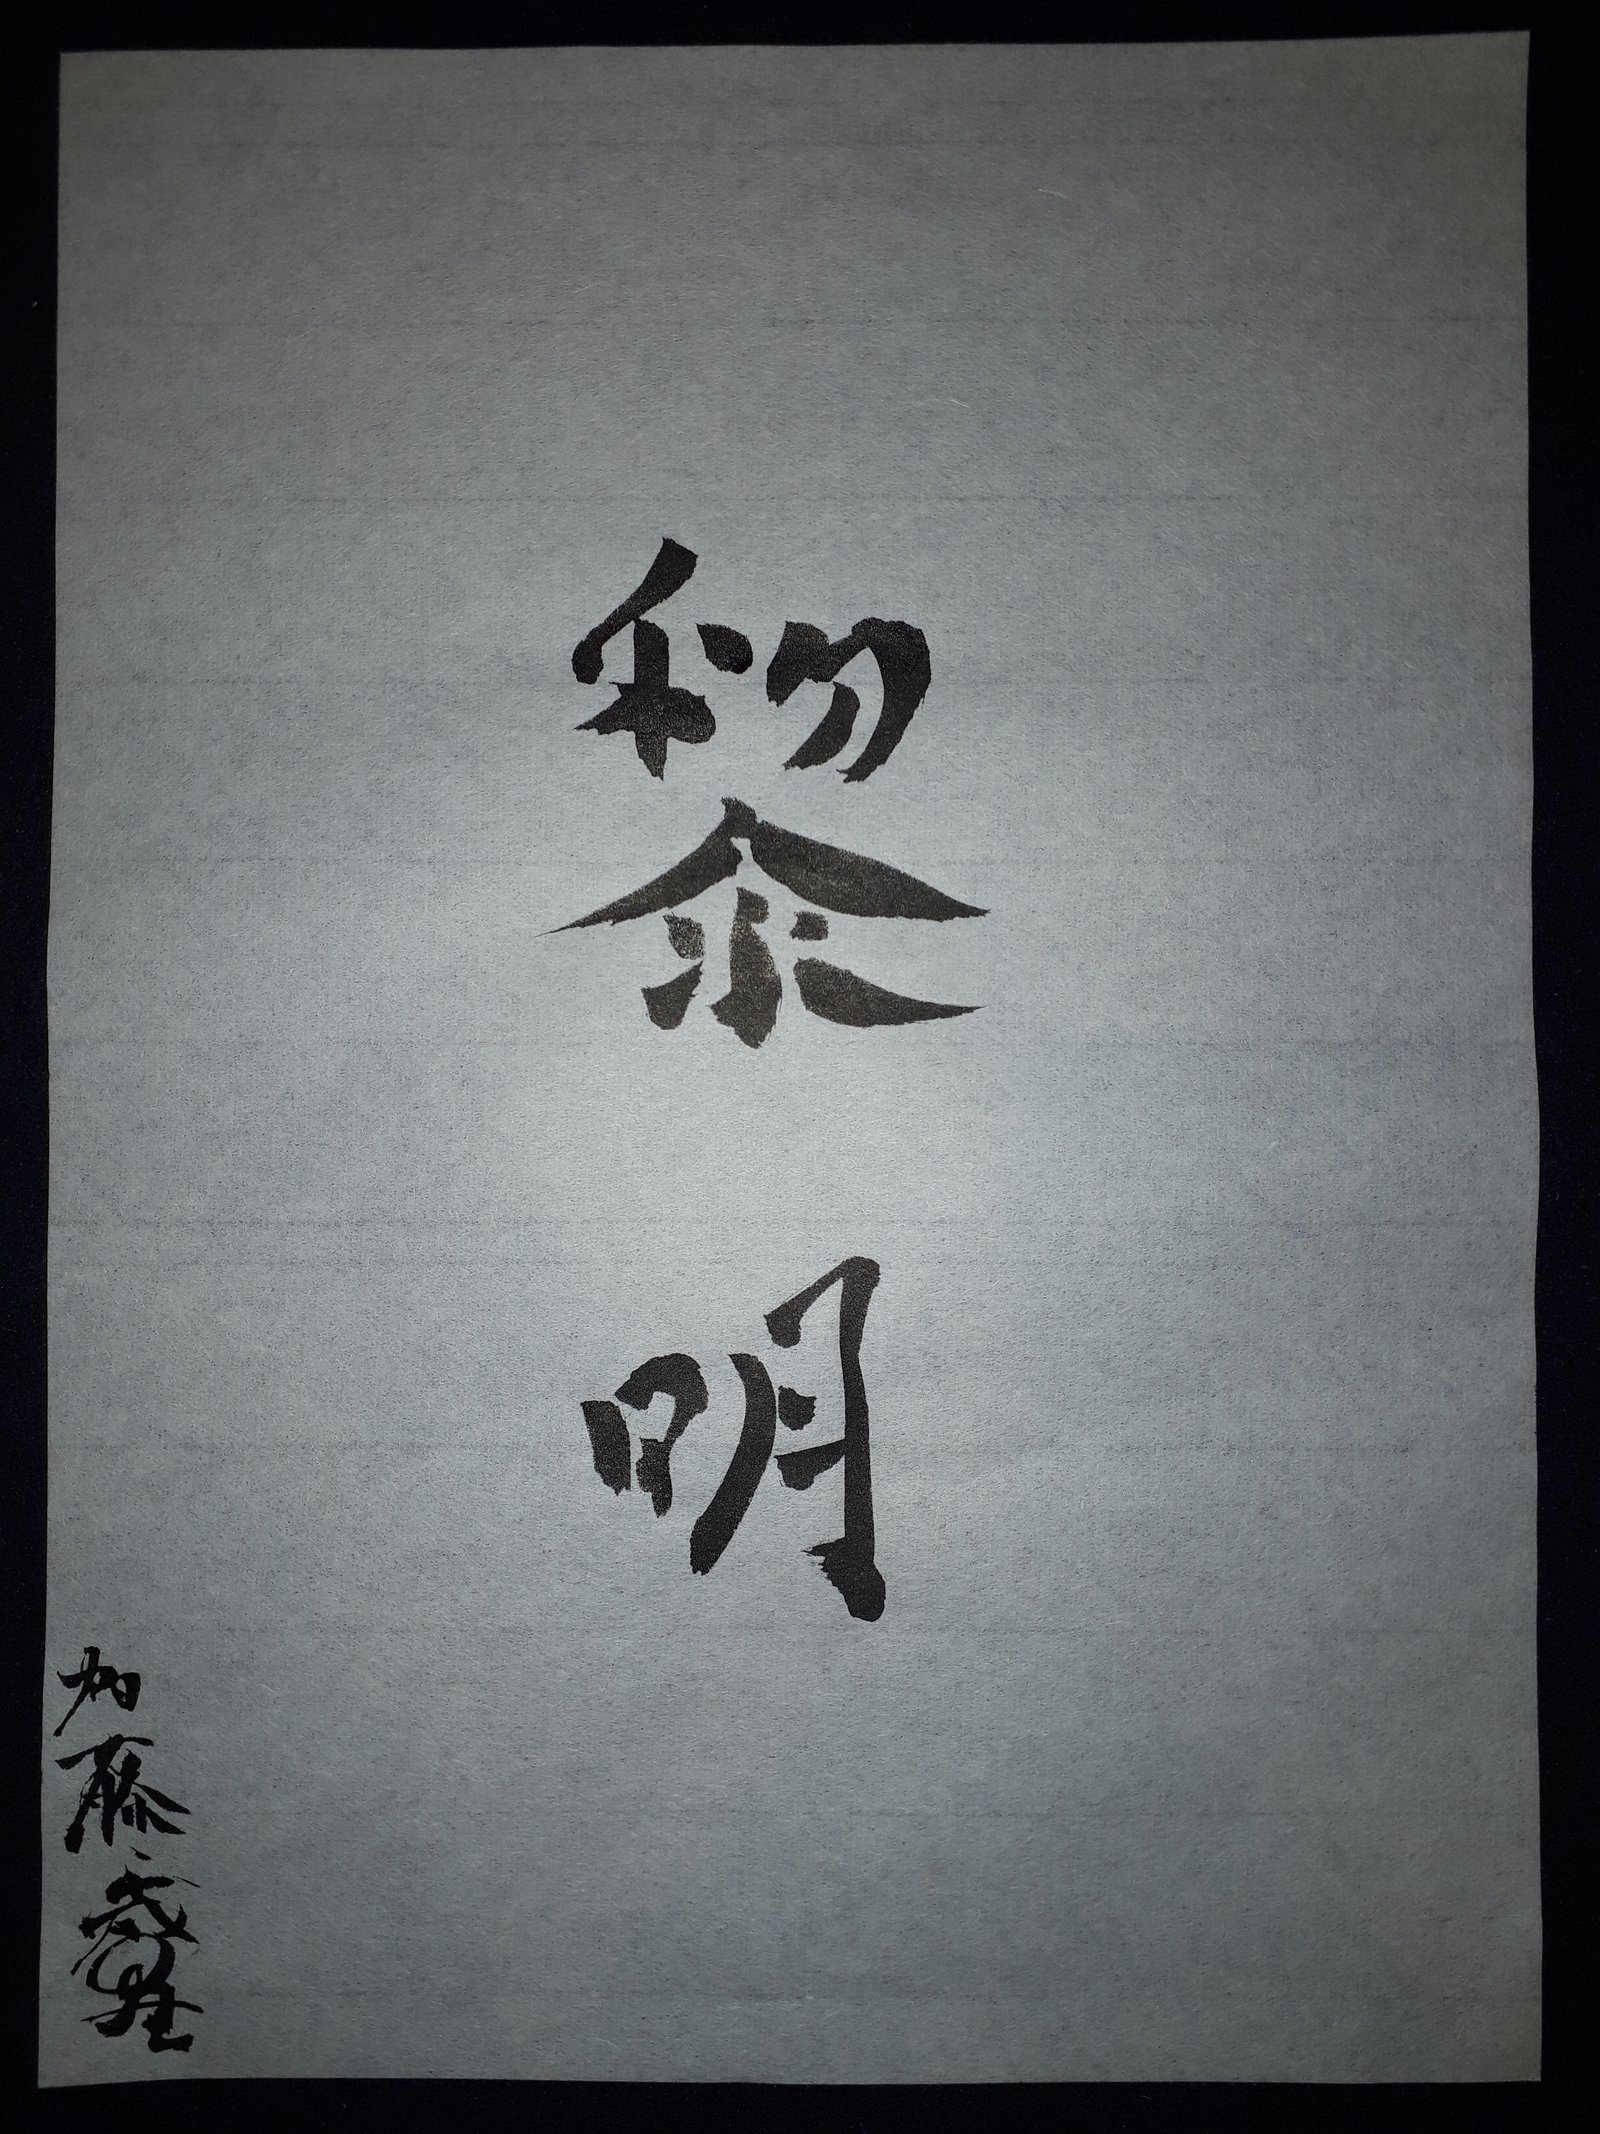 黎明
加藤